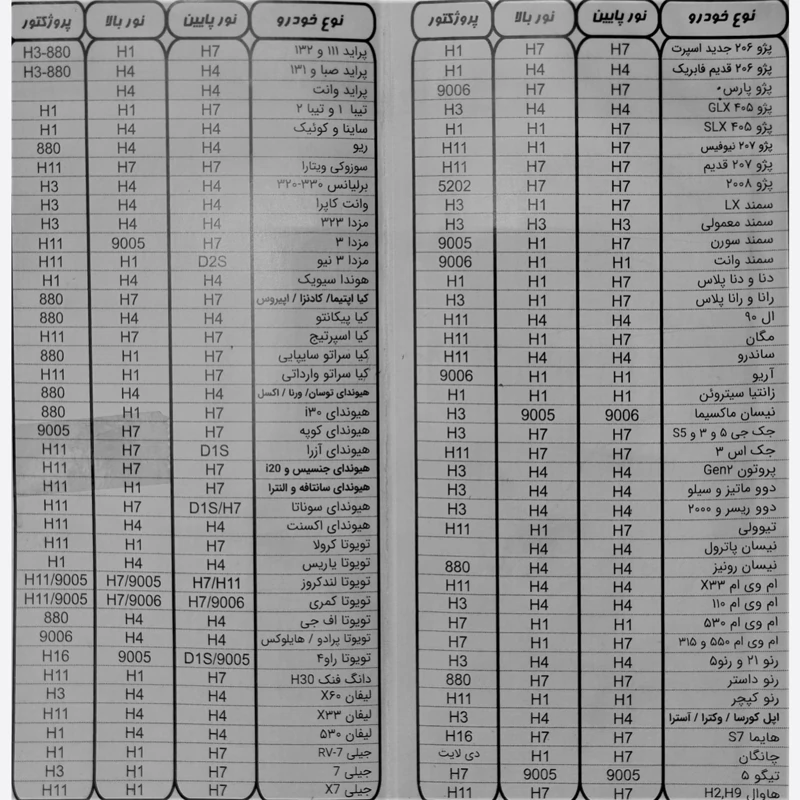 نوع خودرو | نور پایین | نور بالا | پروژکتور
پژو ۲۰۶ جدید اسپرت | H7 | H7 | H1
پژو ۲۰۶ قدیم فابریک | H4 | H4 | H1
پژو پارس | H7 | H7 | 9006
پژو ۴۰۵ GLX | H4 | H4 | H3
پژو ۴۰۵ SLX | H7 | H1 | H1
پژو ۲۰۷ نیوفیس | H7 | H1 | H11
پژو ۲۰۷ قدیم | H7 | H7 | H11
پژو ۲۰۰۸ | H7 | H7 | 5202
سمند LX | H7 | H1 | H3
سمند معمولی | H3 | H3 | H3
سمند سورن | H7 | H1 | 9005
سمند وانت | H1 | H1 | 9006
دنا و دنا پلاس | H7 | H1 | H1
رانا و رانا پلاس | H7 | H1 | H3
ال ۹۰ | H4 | H4 | H11
مگان | H7 | H1 | H11
ساندرو | H4 | H4 | H11
آریو | H1 | H1 | 9006
زانتیا سیتروئن | H1 | H1 | H1
نیسان ماکسیما | 9006 | 9005 | H3
جک جی ۵ و ۳ و S5 | H7 | H7 | H3
جک اس ۳ | H7 | H7 | H11
پروتون Gen۲ | H4 | H4 | H3
دوو ماتیز و سیلو | H4 | H4 | H3
دوو ریسر و ۲۰۰۰ | H4 | H4 | H3
تیوولی | H7 | H1 | H11
نیسان پاترول | H4 | H4
نیسان رونیز | H4 | H4 | 880
ام وی ام X۳۳ | H4 | H4 | H11
ام وی ام ۱۱۰ | H4 | H4 | H3
ام وی ام ۵۳۰ | H1 | H1 | H7
ام وی ام ۵۵۰ و ۳۱۵ | H7 | H1 | H7
رنو ۲۱ و رنو۵ | H4 | H4 | H3
رنو داستر | H7 | H7 | 880
رنو کپچر | H1 | H1 | H11
اپل کورسا / وکترا / آسترا | H4 | H4 | H3
هایما S7 | H7 | H7 | H16
چانگان | H7 | H1 | دی لایت
تیگو ۵ | 9005 | 9005 | H7
هاوال H2,H9 | H7 | H7 | H11
نوع خودرو | نور پایین | نور بالا | پروژکتور
پراید ۱۱۱ و ۱۳۲ | H7 | H1 | H3-880
پراید صبا و ۱۳۱ | H4 | H4 | H3-880
پراید وانت | H4 | H4
تیبا ۱ و تیبا ۲ | H7 | H1 | H1
ساینا و کوئیک | H4 | H4 | H1
ریو | H4 | H4 | 880
سوزوکی ویتارا | H7 | H7 | H11
برلیانس ۳۳۰-۳۲۰ | H4 | H4 | H3
وانت کاپرا | H4 | H4 | H3
مزدا ۳۲۳ | H4 | H4 | H3
مزدا ۳ | H7 | 9005 | H11
مزدا ۳ نیو | D2S | H1 | H11
هوندا سیویک | H4 | H4 | H1
کیا اپتیما/ کادنزا / اپیروس | H7 | H7 | 880
کیا پیکانتو | H4 | H4 | 880
کیا اسپرتیج | H7 | H7 | H11
کیا سراتو سایپایی | H7 | H1 | 880
کیا سراتو وارداتی | H7 | H1 | H11
هیوندای توسان/ ورنا / اکسل | H4 | H4 | 880
هیوندای i۳۰ | H7 | H1 | 880
هیوندای کوپه | H7 | H7 | 9005
هیوندای آزرا | D1S | H7 | H11
هیوندای جنسیس و i20 | H7 | H7 | H11
هیوندای سانتافه و النترا | H7 | H1 | H11
هیوندای سوناتا | D1S/H7 | H7 | H11
هیوندای اکسنت | H4 | H4 | H11
تویوتا کرولا | H7 | H1 | H11
تویوتا یاریس | H4 | H4 | H1
تویوتا لندکروز | H7/H11 | H7/9005 | H11/9005
تویوتا کمری | H7/9006 | H7/9006 | H11/9005
تویوتا اف جی | H4 | H4 | 880
تویوتا پرادو / هایلوکس | H4 | H4 | 9006
تویوتا راو۴ | D1S/9005 | 9005 | H16
دانگ فنگ H30 | H7 | H1 | H11
لیفان X۶۰ | H4 | H4 | H3
لیفان X۳۳ | H4 | H4 | H11
لیفان ۵۳۰ | H4 | H4 | H1
جیلی RV-7 | H7 | H1 | H1
جیلی 7 | H7 | H1 | H3
جیلی X7 | H7 | H1 | H11